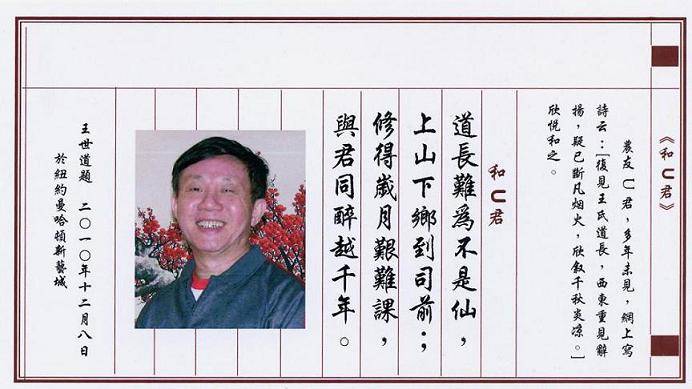 《和匸君》
農友匸君，多年未見，網上寫
詩云：[復見王氏道長，西東重見辭
揚，疑已斷凡烟火，欣叙千秋炎凉。]
欣悅和之。
和匸君
道長難為不是仙，
上山下鄉到司前；
修得歲月艱難課，
與君同醉越千年。
王世道題 二〇一〇年十二月八日
於紐約曼哈頓新藝城